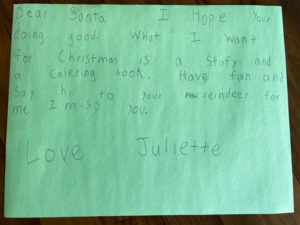 Dear Santa I Hope Your
doing good. What I Want
for Christmas is a Stufy and
a Calering book. Have fun and
Say hi to your reindeer for
me I miss You.
Love Juliette